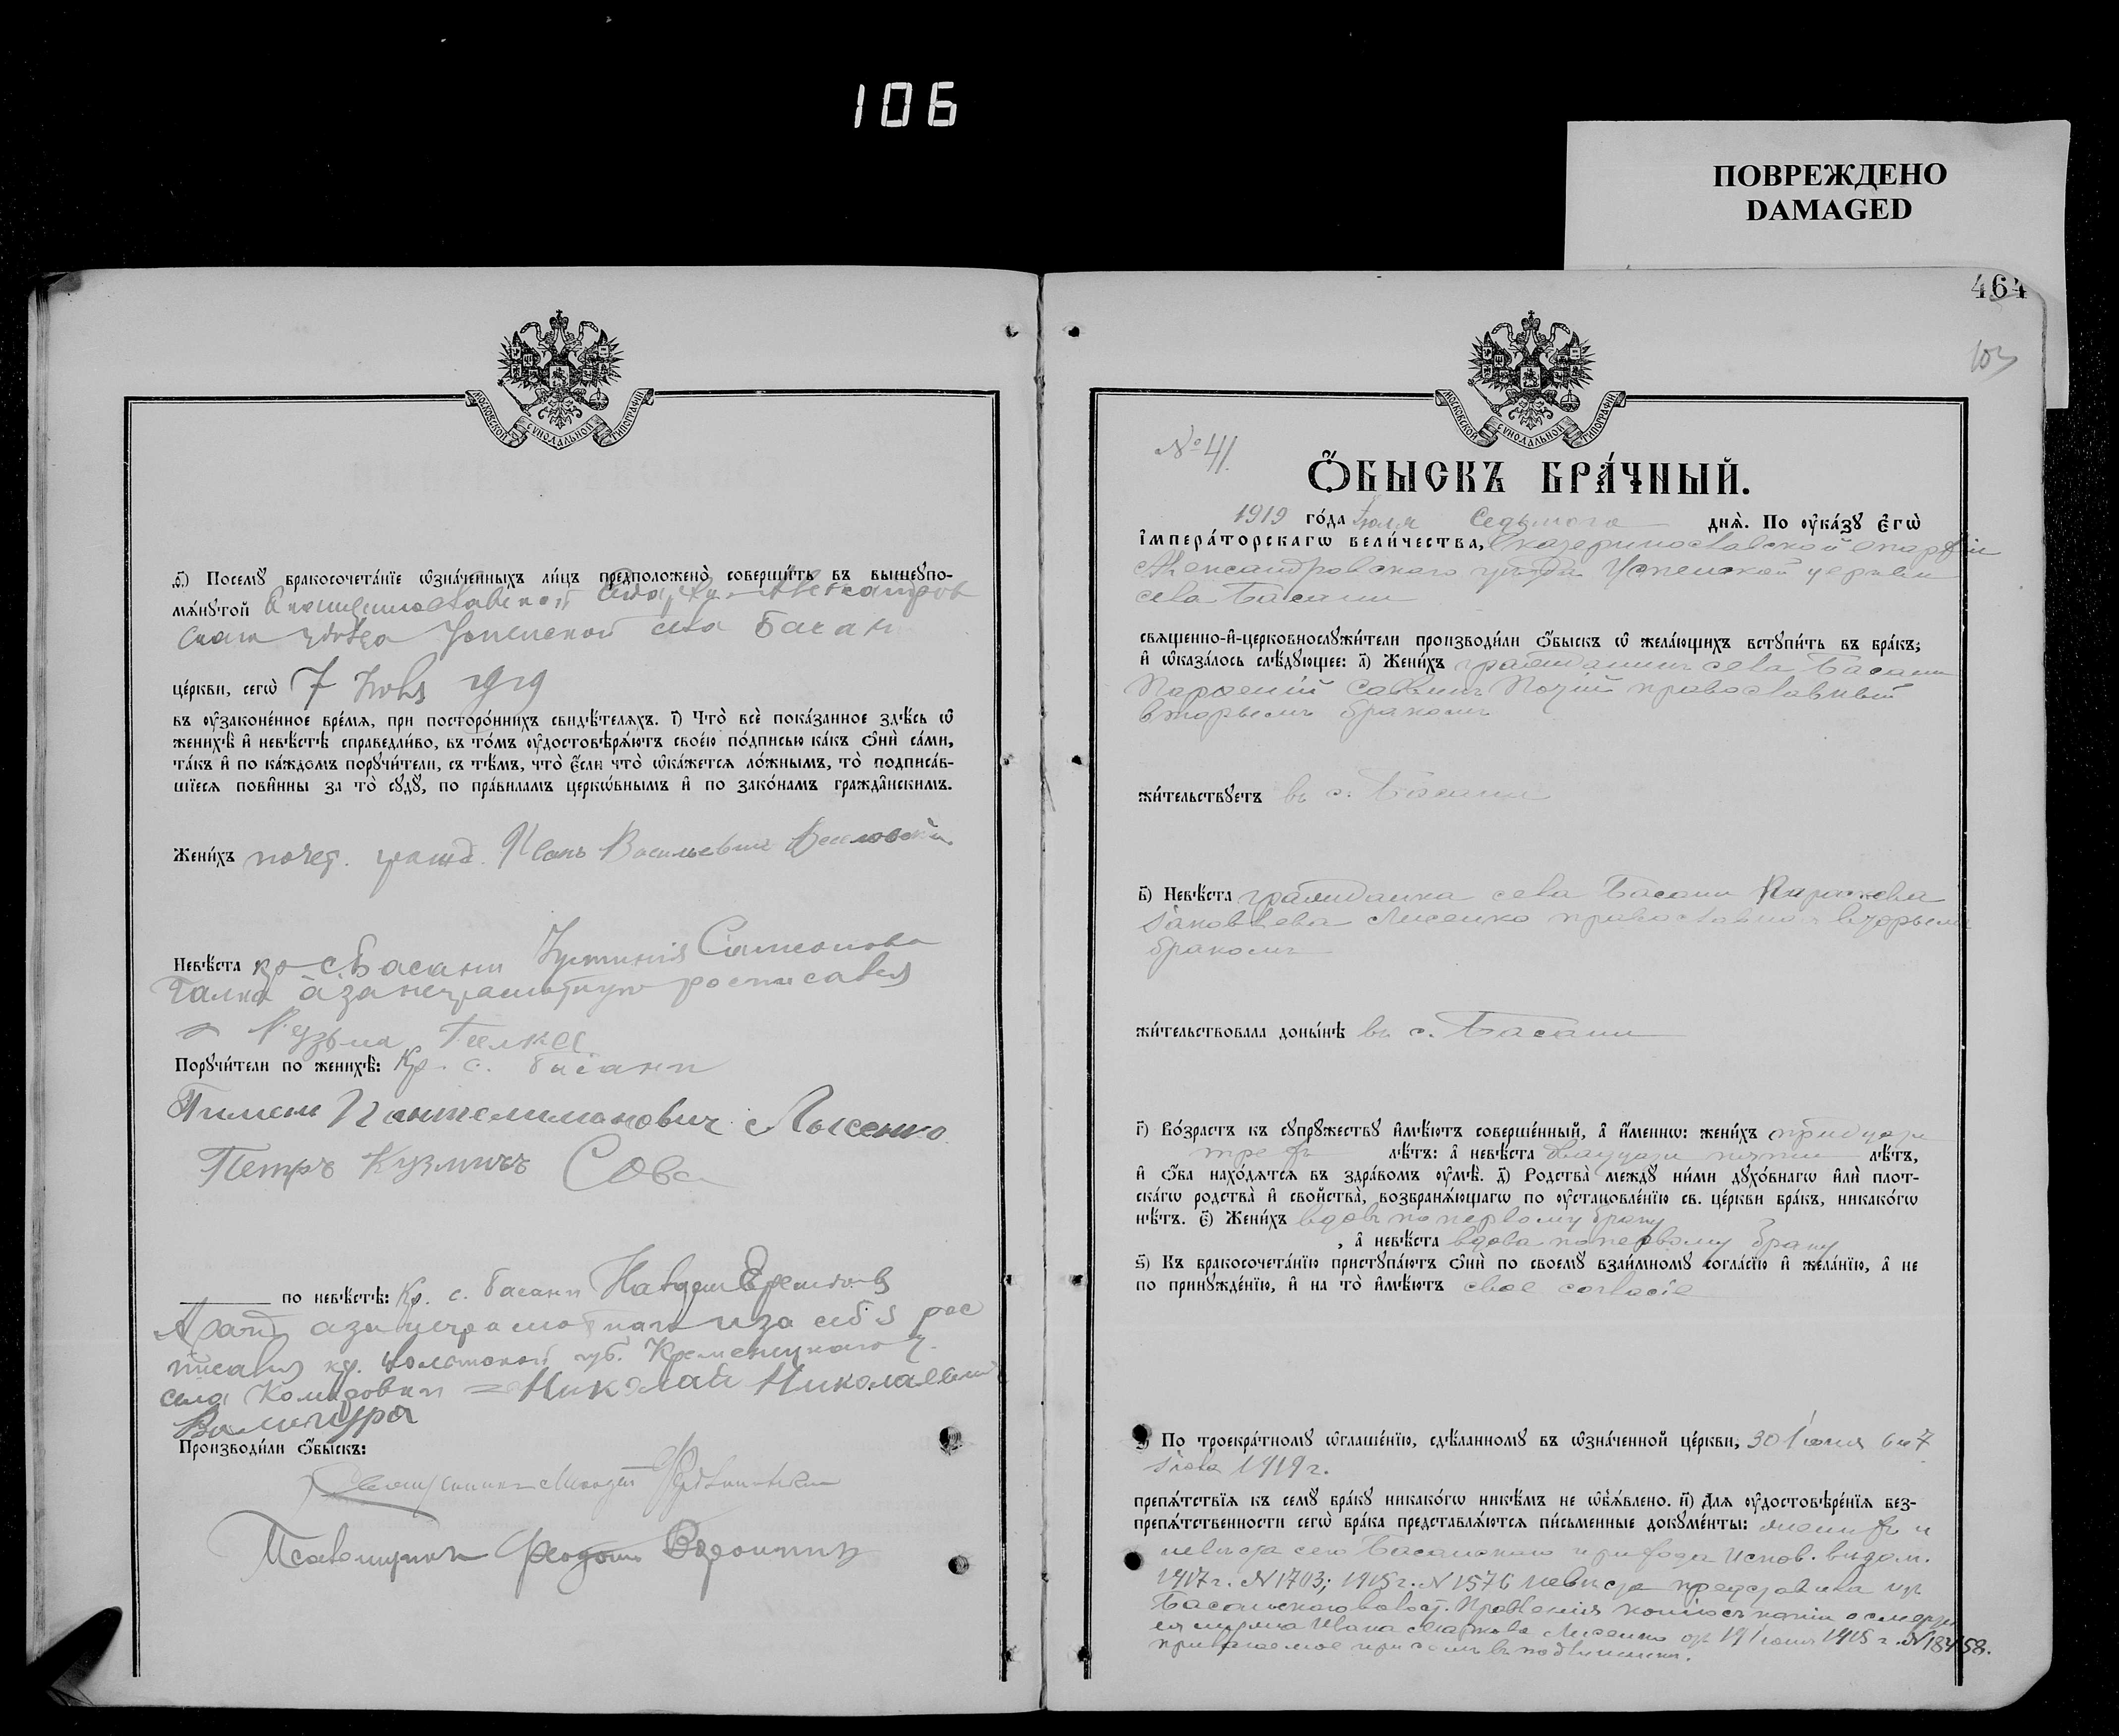 106
ПОВРЕЖДЕНО
DAMAGED
МОСКОВСКОЙ СѴНОДАЛЬНОЙ ТИПОГРАФІИ
ѳ҃) Посемꙋ бракосочета́нїе ѡ҆зна́ченныхъ ли́цъ предположено̀ соверши́ть въ вышеꙋпо-
мѧ́нꙋтой
уѣзда Успенской села Басан
це́ркви, сегѡ̀ 7 1919
въ ᲂу҆законе́нное вре́мѧ, при посторо́ннихъ свидѣ́телѧхъ. і҃) Что̀ всѐ пока́занное здѣ́сь ѡ҆
женихѣ̀ и҆ невѣ́стѣ справедли́во, въ то́мъ ᲂу҆достовѣрѧ́ютъ свое́ю по́дписью ка́къ ѻ҆нѝ са́ми,
та́къ и҆ по ка́ждомъ порꙋчи́тели, съ тѣ́мъ, что̀ є҆́сли что̀ ѡ҆ка́жетсѧ ло́жнымъ, то̀ подписа́в-
шїесѧ пови́нны за то̀ сꙋдꙋ̀, по пра́виламъ церкѡ́внымъ и҆ по зако́намъ гражда́нскимъ.
Жени́хъ почет. гражд. Иванъ Васильевич
Невѣ́ста кр с. Басани Іустинія Самсонова
Галка а за неграмотную росписався
Кузьма Галка
Порꙋчи́тели по женихѣ̀: Кр. с. Басани
Пимен Пантелимонович Лысенко
Петръ Кузмичъ Сова
по невѣ́стѣ: Кр. с. Басани
а за неграмотнаго и за себя рос
писався кр. губ. Кременецкаго у.
села Николай Николаевич
Производи́ли ѻ҆́быскъ:
Псаломщикъ
464
103
МОСКОВСКОЙ СѴНОДАЛЬНОЙ ТИПОГРАФІИ
№ 41.
Ѻ҆́БЫСКЪ БРА́ЧНЫЙ.
1919 го́да Іюля Седьмого днѧ̀. По ᲂу҆ка́зꙋ є҆гѡ̀
і҆мпера́торскагѡ вели́чества, Екатеринославской епархіи
Александровского уѣзда Успенской церкви
села Басани
свѧще́нно-и҆-церковнослꙋжи́тели производи́ли ѻ҆́быскъ ѡ҆ жела́ющихъ встꙋпи́ть въ бра́къ;
и҆ ѡ҆каза́лось слѣ́дꙋющее: а҃) Жени́хъ гражданинъ села Басани
Парѳеній Саввинъ православный
вторымъ бракомъ
жи́тельствꙋетъ въ с. Басани
в҃) Невѣ́ста гражданка села Басани Параскева
Іаковлева Лисенко православная вторымъ
бракомъ
жи́тельствовала доны́нѣ въ с. Басани
г҃) Во́зрастъ къ сꙋпрꙋ́жествꙋ и҆мѣ́ютъ соверше́нный, а҆ и҆́менно: жени́хъ тридцати
трехъ лѣ́тъ: а҆ невѣ́ста двадцати пяти лѣ́тъ,
и҆ ѻ҆́ба нахо́дѧтсѧ въ здра́вомъ ᲂу҆мѣ̀. д҃) Родства̀ междꙋ̀ ни́ми дꙋхо́внагѡ и҆лѝ плот-
ска́гѡ родства̀ и҆ сво́йства, возбранѧ́ющагѡ по ᲂу҆становле́нїю св. це́ркви бра́къ, никако́гѡ
нѣ́тъ. є҃) Жени́хъ вдовъ по первому браку
, а҆ невѣ́ста вдова по первому браку
ѕ҃) Къ бракосочета́нїю пристꙋпа́ютъ ѻ҆нѝ по своемꙋ̀ взаи́мномꙋ согла́сїю и҆ жела́нїю, а҆ не
по принꙋжде́нїю, и҆ на то̀ и҆мѣ́ютъ свое согласіе
По троекра́тномꙋ ѡ҆глаше́нїю, сдѣ́ланномꙋ въ ѡ҆зна́ченной це́ркви, 30 Іюня 6 и 7
Іюля 1919 г.
препѧ́тствїѧ къ семꙋ̀ бра́кꙋ никако́гѡ никѣ́мъ не ѡ҆б̾ѧ́влено. и҃) Длѧ ᲂу҆достовѣре́нїѧ без-
препѧ́тственности сегѡ̀ бра́ка представлѧ́ютсѧ пи́сьменные докꙋме́нты: женихъ и
невѣста сего Басанскаго прихода испов. вѣдом.
1917 г. № 1703; 1915 г. № 1576 невѣста представила изъ
Басанскаго волост. Правленія копію съ копіи о смерти
ея мужа Ивана Маркова Лисенко отъ 19 Іюня 1915 г. № 18458.
прилагаемое при семъ въ подлинникѣ.